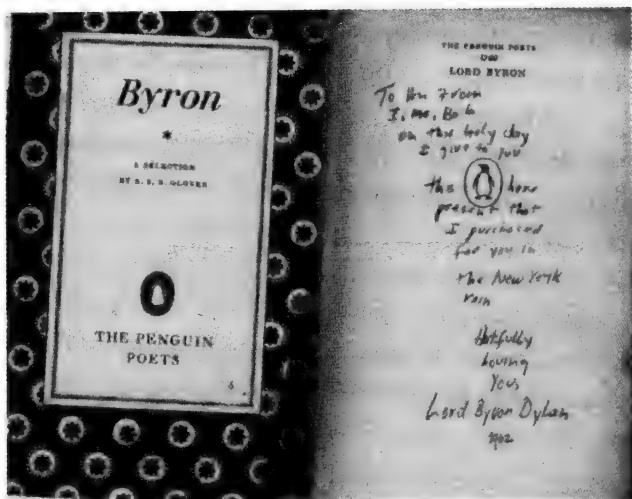 Byron
A SELECTION
BY A. S. B. GLOVER
THE PENGUIN
POETS
THE PENGUIN POETS
LORD BYRON
To from
I, me, Bob
on this holy day
I give to you
this here
present that
I purchased
for you in
the New York
rain
Loving
Yous
Lord Byron Dylan